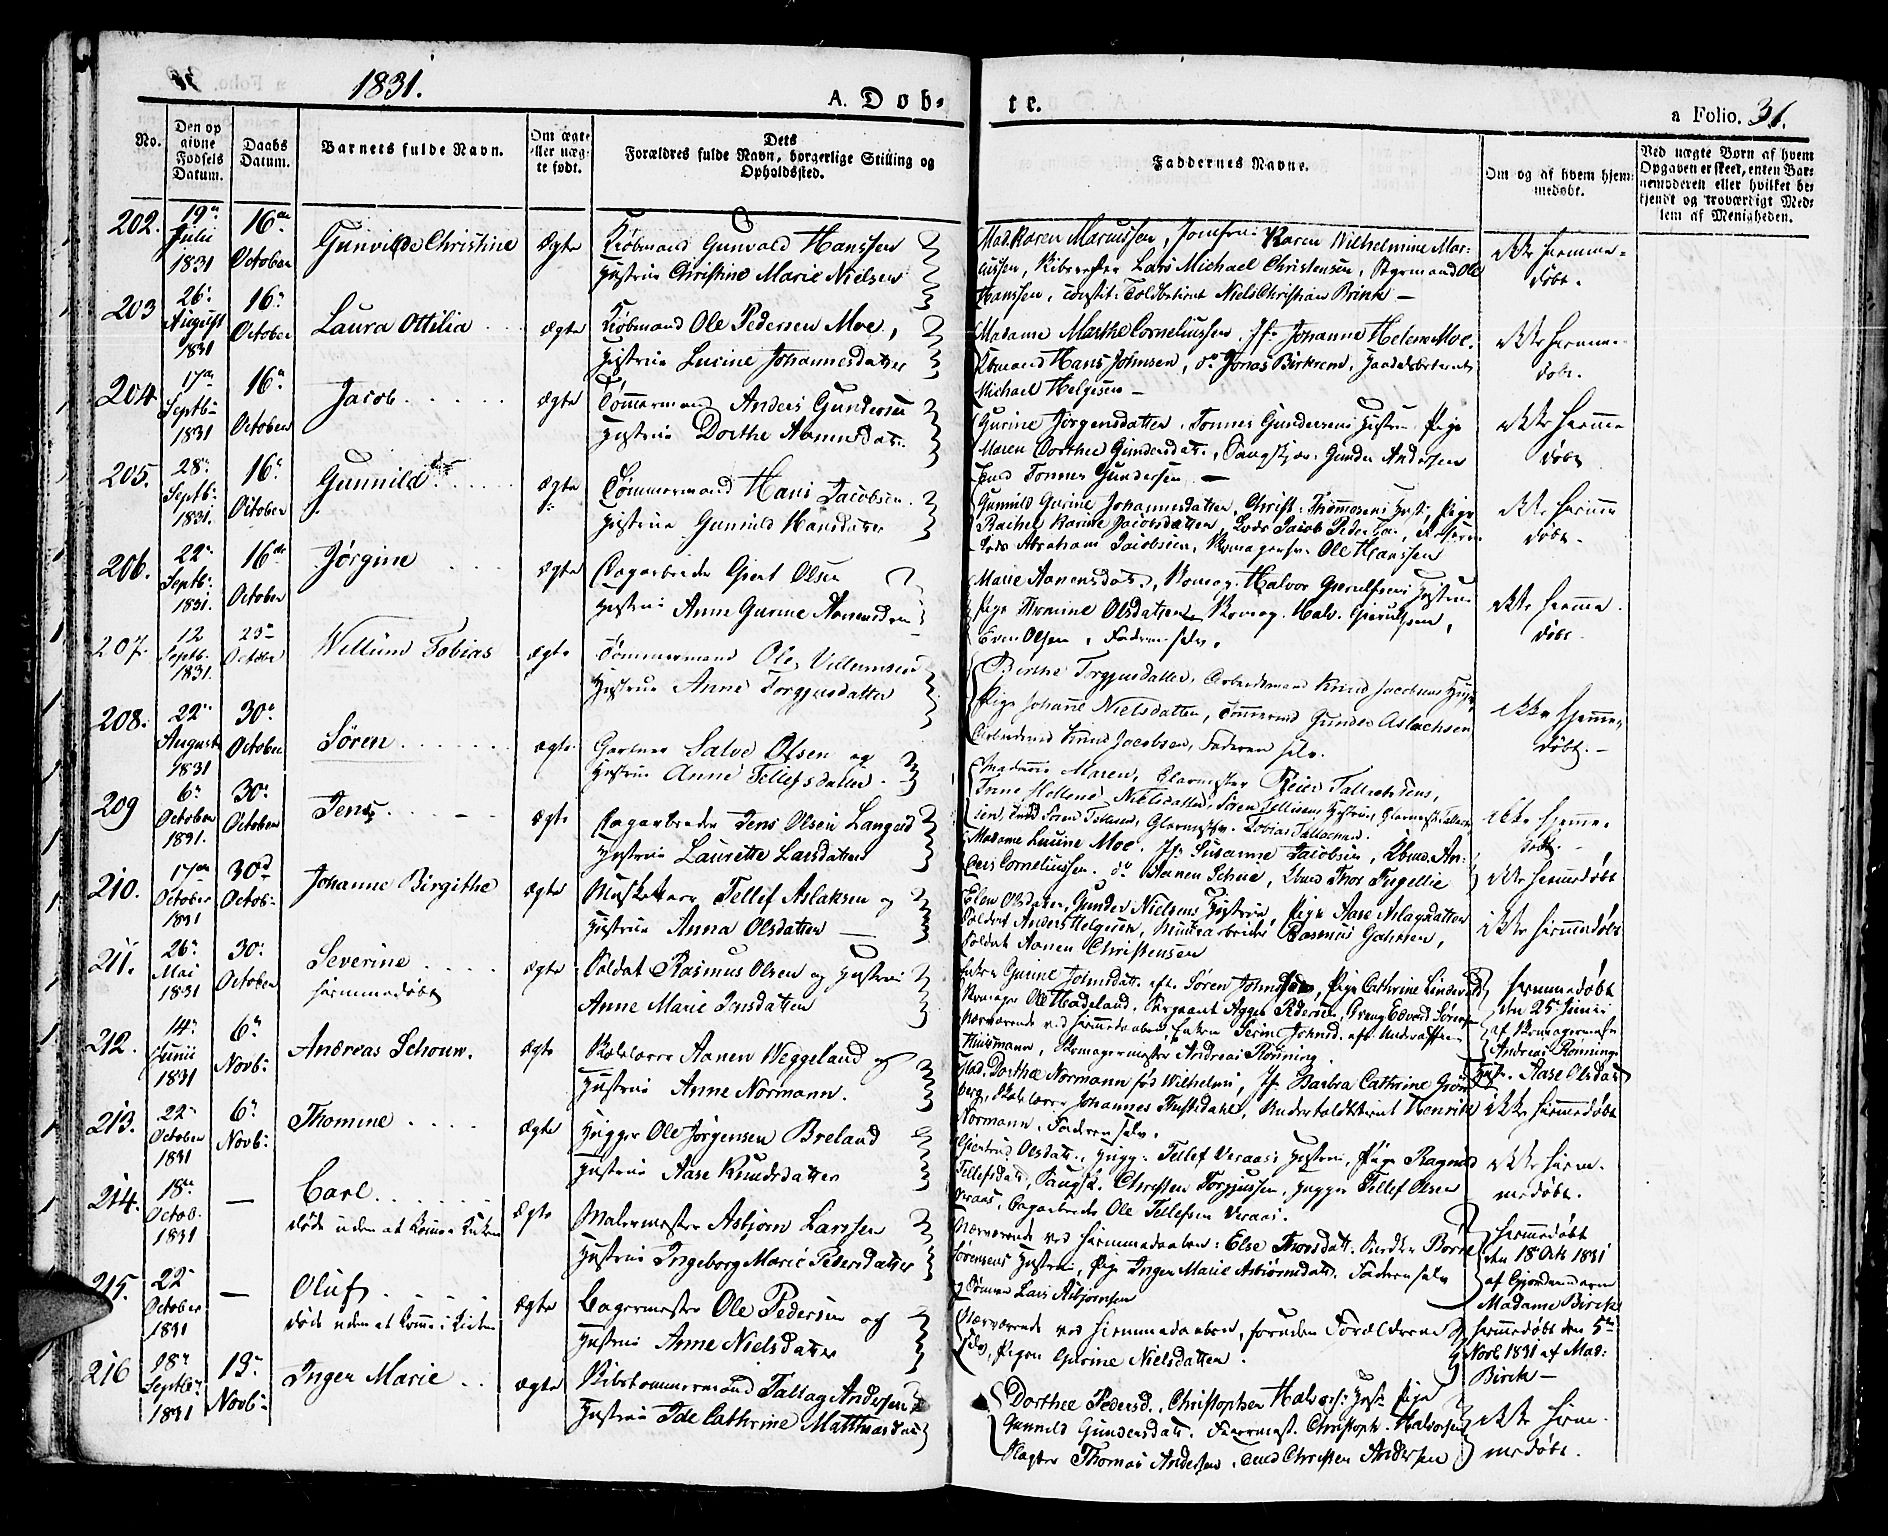 1831.
A. Døb-
te.
a Folio. 31.
No.
Den op
givne
Fødsels
Datum.
Daabs
Datum.
Barnets fulde Navn.
Om ægte
eller uæg-
te født.
Dets
Forældres fulde Navn, borgerlige Stilling og
Opholdssted.
Faddernes Navne.
Om og af hvem hjem-
medøbt.
Ved uægte Børn af hvem
Opgaven er skeet, enten Bar-
nemoderen eller hvilket be
kjendt og troværdigt Med-
lem af Menigheden.
202.
19de
Julii
1831
16de
October
Gunvilde Christine
Ægte
Kiøbmand Gunvald Hanssen
Hustrue Christine Marie Nielsen
Mad Karen Marcussen, Jomfru Karen Wilhelmine Mar-
cussen, Lars Michael Christensen, Styrmand Ole
Hanssen, Toldbetient Niels Christian Brink —
ikke hiemme-
døbt.
203
26.
August
1831
16.
October
Laura Ottilia
ægte
Kiøbmand Ole Pedersen Moe,
Hustrue Lucine Johannesdatter
Madame Marthe Corneliussen, Jfr. Johanne Helene Moe.
Kbmand Hans Johnsen, do Jonas Birkrem,
Michael Helgesen —
ikke hiemme-
døbt.
204
17de
Septbr
1831
16de
October
Jacob
ægte
Tømmermand Anders Gundersen
Hustrue Dorthe Aanensdatr.
Gurine Jørgensdatter, Tønnes Gundersens Hustrue, Pige
Maren Dorthea Gundersdatr., Gunder Andersen
Tønnes Gundersen —
ikke hiemme
døbt
205.
28de
Septb.
1831.
16.
October
Gunnild
ægte
Tømmermand Hans Jacobsen
Hustrue Gunnild Hansdatter
Gunnild Gurine Johannesdatter, Christ. Thommesens Hust., Pige
Rachel Karine Jacobsdatter, Lods Jacob Pedersen,
Lods Abraham Jacobsen, Ole Hanssen
ikke hiemme
døbt.
206.
22de
Septb.
1831.
16de
October
Jørgine
ægte
Bagarbeider Giert Olsen
Hustrue Anne Gurine Aanensdtr
Marie Aanensdatr., Halvor Gierulfsens Hustrue
Pige Thomine Olsdatter, Halv. Gierulfsen,
Even Olsen, Faderen selv.
ikke hiemme
døbt.
207.
12
Septb.
1831.
23de
October
Willum Tobias
ægte
Tømmermand Ole Villumsen
Hustrue Anne Torgjusdatter
Birthe Torgjusdatter, Arbeidsmand Knud Jacobsens Hust.
Pige Johanne Nielsdatter, Tømmermd Gunder Aslachsen
Arbeidsmd Knud Jacobsen, Faderen selv.
ikke hjemme-
døbt. —
208.
22de
August
1831
30de
October
Søren
ægte
Gartner Salve Olsen og
Hustrue Anne Tellefsdatter.
Madame Maren, Glarmester Reier Tallachsens,
Anne Hellene Nielsdatter, Søren Tellefsens Hustrue,
Søren Tellefsen, Glarmester Tobias Tallachsen.
ikke hjemme-
døbt.
209
6.
October
1831.
30.
October
Jens
ægte
Bagarbeider Jens Olsen Langeid
Hustrue Laurette Larsdatter
Madame Lucine Moe, Jfr. Susanne Jacobsen,
Corneliussen, do Aanen Schue, Thor Ingellie
ikke hiemmedøbt
210.
17de
October
1831
30d
Octob.
Johanne Birgithe
ægte
Musketeer Tellef Aslaksen og
Hustrue Anna Olsdatter —
Elen Olsdatter, Gunder Nielsens Hustrue, Pige Aase Aslagsdatter
Soldat Anders Helgesen, Rasmus
Soldat Aanen Christensen
ikke hiemmedøbt
211.
26.
Mai
1831
30.
October
Severine
hiemmedøbt
ægte
Soldat Rasmus Olsen og Hustrue
Anne Marie Jensdatter
Enken Gurine Johnsdatr. eft. Søren, Pige Cathrine
Ole Hadeland, Sergeant Agge Pedersen,
Nærværende ved Hiemmedaaben, Enken Serine Johnsd. eft. Underoffr.
Huusmann, Skomagermester Andreas Rønning.
hiemmedøbt
den 25 Junii
af Skomagermester
Andreas Rønnings
Hust. Aase Olsdatr
212.
14.
Junii
1831
6de
Novb.
Andreas Schouw.
ægte
Skolelærer Aanen Weggeland og
Hustrue Anne Normann.
Mad. Dorthe Normann fød Wilhelmi, Jfr. Barbra Cathrine Grøn-
berg, Skolelærer Johannes, Undertoldbetient Henrik
Normann, Faderen selv.
ikke hiemmedøbt
213.
22de
October
1831
6.
Novb.
Thomine
ægte
Hugger Ole Jørgensen Breland
Hustrue Aase Knudsdatter
Giertrud Olsdatr., Hugg. Tellef Veraas's Hustrue, Pige Ragnild
Tellefsdatr, Christen Torgjussen, Hugger Tellef Olsen
Veraas, Bagarbeider Ole Tellefsen Veraas.
ikke hiem-
medøbt.
214.
18de
Octob.
1831
—
Carl
døde uden at komme i Kirken
ægte
Malermester Asbjørn Larssen
Hustrue Ingeborg Marie Pedersdatter
Nærværende ved hiemmedaaben: Else Thorsdatr., Børre
Sørensens Hustrue, Pige Inger Marie Asbiørnsdatr. Faderen selv
og Lars Asbjørnsen
hiemmedøbt
den 18 Octr 1831
af Gjordemoderen
Madame Birck
215.
22de
October
1831
—
Oluf
døde uden at komme i Kirken
ægte
Bagermester Ole Pedersen og
Hustrue Anne Nielsdatter
Nærværende ved hiemmedaaben, foruden Forældrene
selv, Pigen Gurine Nielsdatter.
hiemmedøbt den 5te
Novb 1831 af Mad.
Birck —
216
28de
Septbr.
1831
13de
Novb.
Inger Marie
ægte
Skibstømmermand Tallag Andersen
Hustrue Ide Cathrine Matthiasdatr
Dorthee Pedersd., Christopher Halvors. Hust. Pige
Gunnild Gundersdatr., Christoph. Halvorsen
Slagter Thomas Andersen, Christen Andersen
ikke hiem-
medøbt.